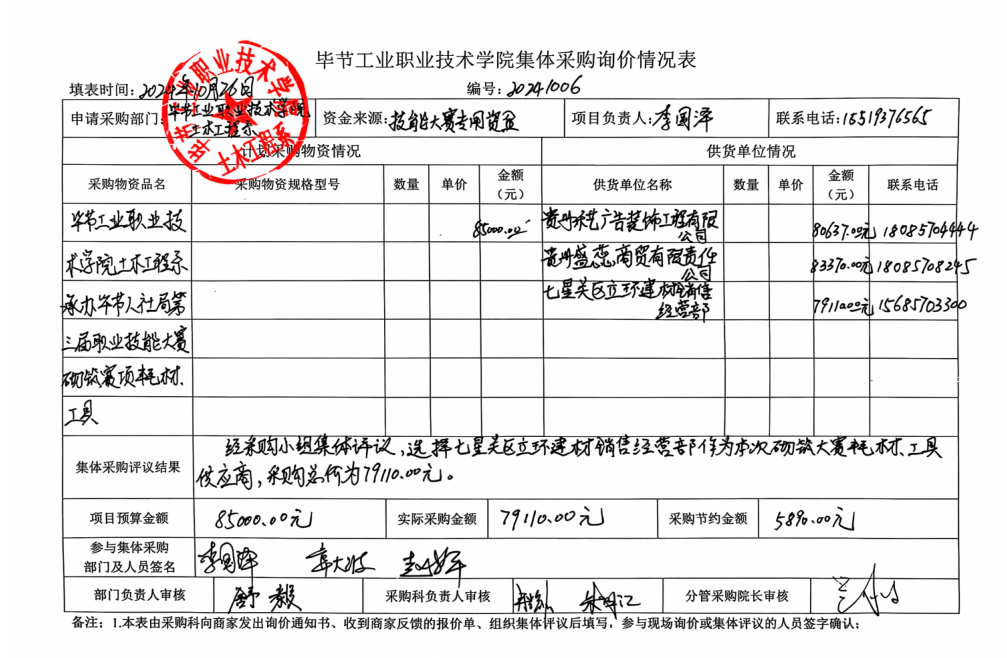 毕节工业职业技术学院集体采购询价情况表
填表时间：2024年10月26日 编号：20241006
申请采购部门：毕节工业职业技术学院土木工程系 资金来源：技能大赛专用资金 项目负责人：李国泽 联系电话：18519376565
毕节工业职业技术学院
土木工程系
计划采购物资情况 供货单位情况
采购物资品名 采购物资规格型号 数量 单价 金额（元） 供货单位名称 数量 单价 金额（元） 联系电话
毕节工业职业技 85000.00 贵州 艺广告装饰工程有限公司 80637.00元 18085704444
术学院土木工程系 贵州盛蕊商贸有限责任公司 83370.00元 18085708245
承办毕节人社局第 七星关区立环建材销售经营部 79110.00元 15685703300
三届职业技能大赛
砌筑赛项耗材、
工具
集体采购评议结果 经采购小组集体评议，选择七星关区立环建材销售经营部作为本次砌筑大赛耗材、工具
供应商，采购总价为79110.00元。
项目预算金额 85000.00元 实际采购金额 79110.00元 采购节约金额 5890.00元
参与集体采购
部门及人员签名 李国泽
部门负责人审核 舒毅 采购科负责人审核 分管采购院长审核
备注：1.本表由采购科向商家发出询价通知书、收到商家反馈的报价单、组织集体评议后填写，参与现场询价或集体评议的人员签字确认；